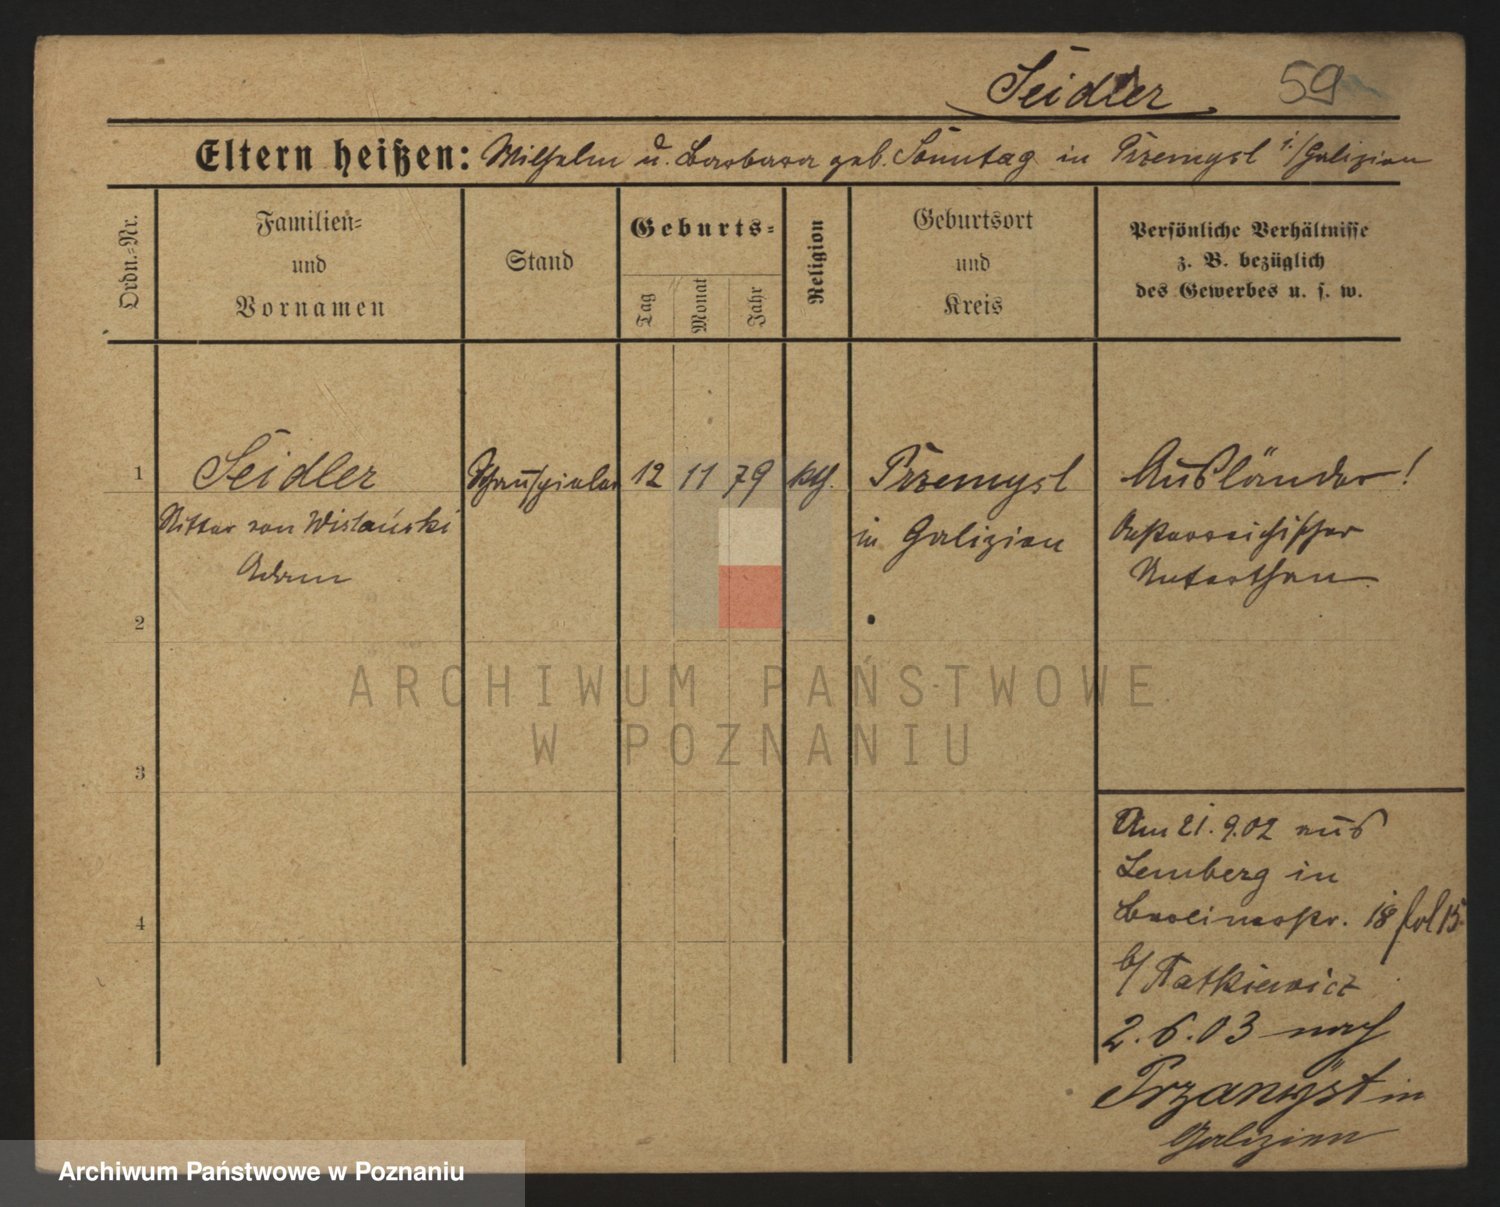 Seidler 59
Eltern heißen: Wilhelm u. Barbara geb. Sonntag in Przemysl i/Galizien
Ordn.-Nr.
Familien-
und
Vornamen
Stand
Geburts-
Tag
Monat
Jahr
Religion
Geburtsort
und
Kreis
Persönliche Verhältnisse
z. B. bezüglich
des Gewerbes u. s. w.
1 Seidler Schauspieler 12 11 79 kth. Przemysl Ausländer!
Ritter von Wislański in Galizien Oesterreichischer
Adam Unterthan
2
ARCHIWUM PAŃSTWOWE
W POZNANIU
3
Am 21.9.02 aus
Lemberg in
Berlinerstr. 18 fol 15
4
b/ Ratkiewicz
2.6.03 nach
in
Galizien
Archiwum Państwowe w Poznaniu